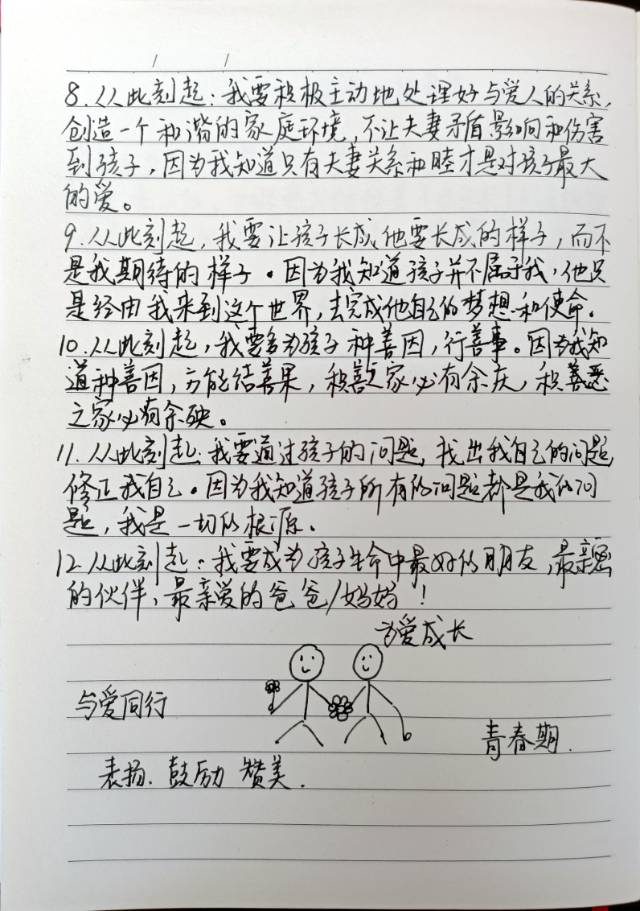 8.从此刻起：我要积极主动地处理好与爱人的关系，
创造一个和谐的家庭环境，不让夫妻矛盾影响和伤害
到孩子，因为我知道只有夫妻关系和睦才是对孩子最大
的爱。
9.从此刻起，我要让孩子长成他要长成的样子，而不
是我期待的样子。因为我知道孩子并不属于我，他只
是经由我来到这个世界，去完成他自己的梦想和使命。
10.从此刻起，我要多为孩子种善因，行善事。因为我知
道种善因，方能结善果，积善之家必有余庆，积恶
之家必有余殃。
11.从此刻起：我要通过孩子的问题，找出我自己的问题，
修正我自己。因为我知道孩子所有的问题都是我的问
题，我是一切的根源。
12.从此刻起：我要成为孩子生命中最好的朋友，最亲密
的伙伴，最亲爱的爸爸/妈妈！
为爱成长
与爱同行
青春期.
表扬.鼓励 赞美.